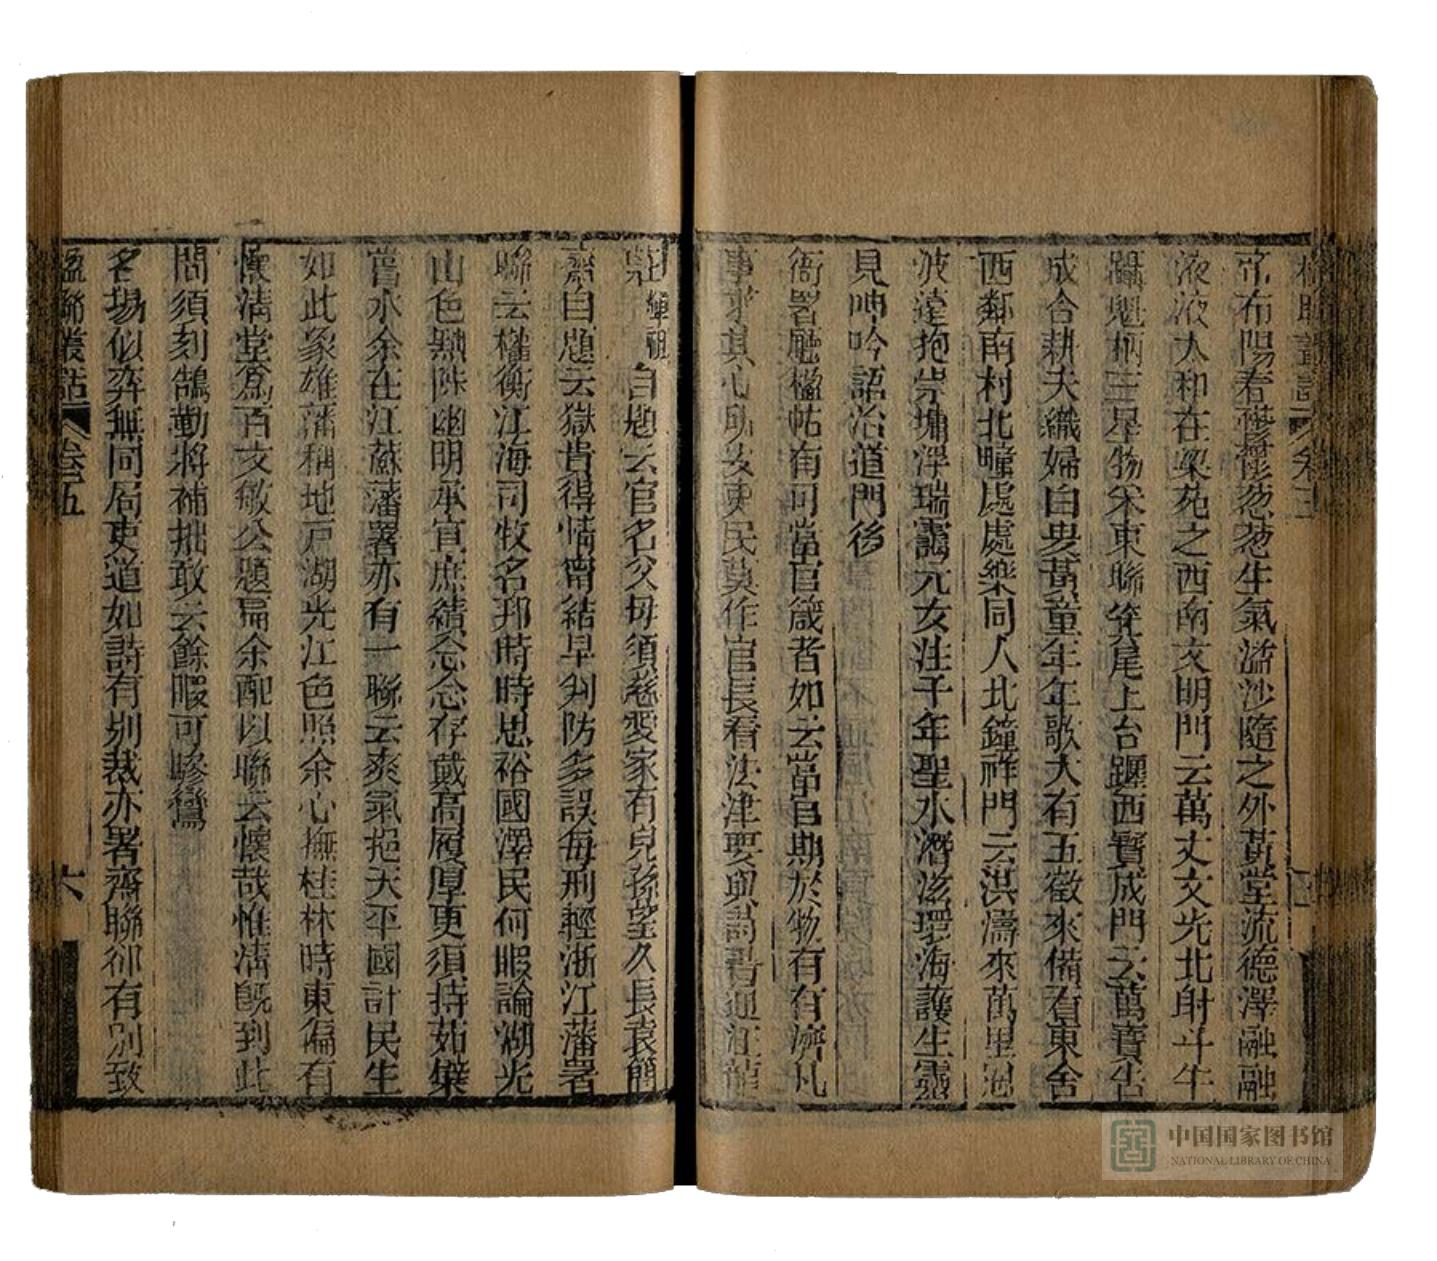 帝布陽春藹藹葱葱生氣溢沙隨之外黃堂流德澤融融
液液太和在梁苑之西南文明門云萬丈文光北射斗牛
躔魁柄三星物采東聯箕尾上台躔西賢成門云萬寶告
成合耕夫織婦白叟黃童年年歌大有五徵來備看東舍
西鄰南村北疃處處樂同人北鐘祥門云洪濤來萬里冠
波遠抱崇墉浮瑞靄元亥注千年聖水潛滋環海護生靈
見呻吟語治道門後
衙署廳楹帖有可當官箴者如云當官期於物有有濟凡
事求真心助友吏民莫作官長看法津要與詩書通江龍
莊煇祖自題云官名父母須慈愛家有兒孫望久長袁簡
齋自題云獄貴得情甯結早判防多誤每刑輕浙江藩署
聯云權衡江海司牧名邦時時思裕國澤民何暇論湖光
山色黜陟幽明承宣庶績念念存戴高履厚更須持茹檗
嘗水余在江蘇藩署亦有一聯云爽氣挹天平國計民生
如此象雄藩稱地戶湖光江色照余心撫桂林時東偏有
懷清堂爲百文敏公題扁余配以聯云懷哉惟清旣到此
間須刻鵠勤將補拙敢云餘暇可驂鸞
名場似弈無同局吏道如詩有別裁亦署齋聯卻有別致
楹聯叢話
卷五
六
中国国家图书馆
NATIONAL LIBRARY OF CHINA